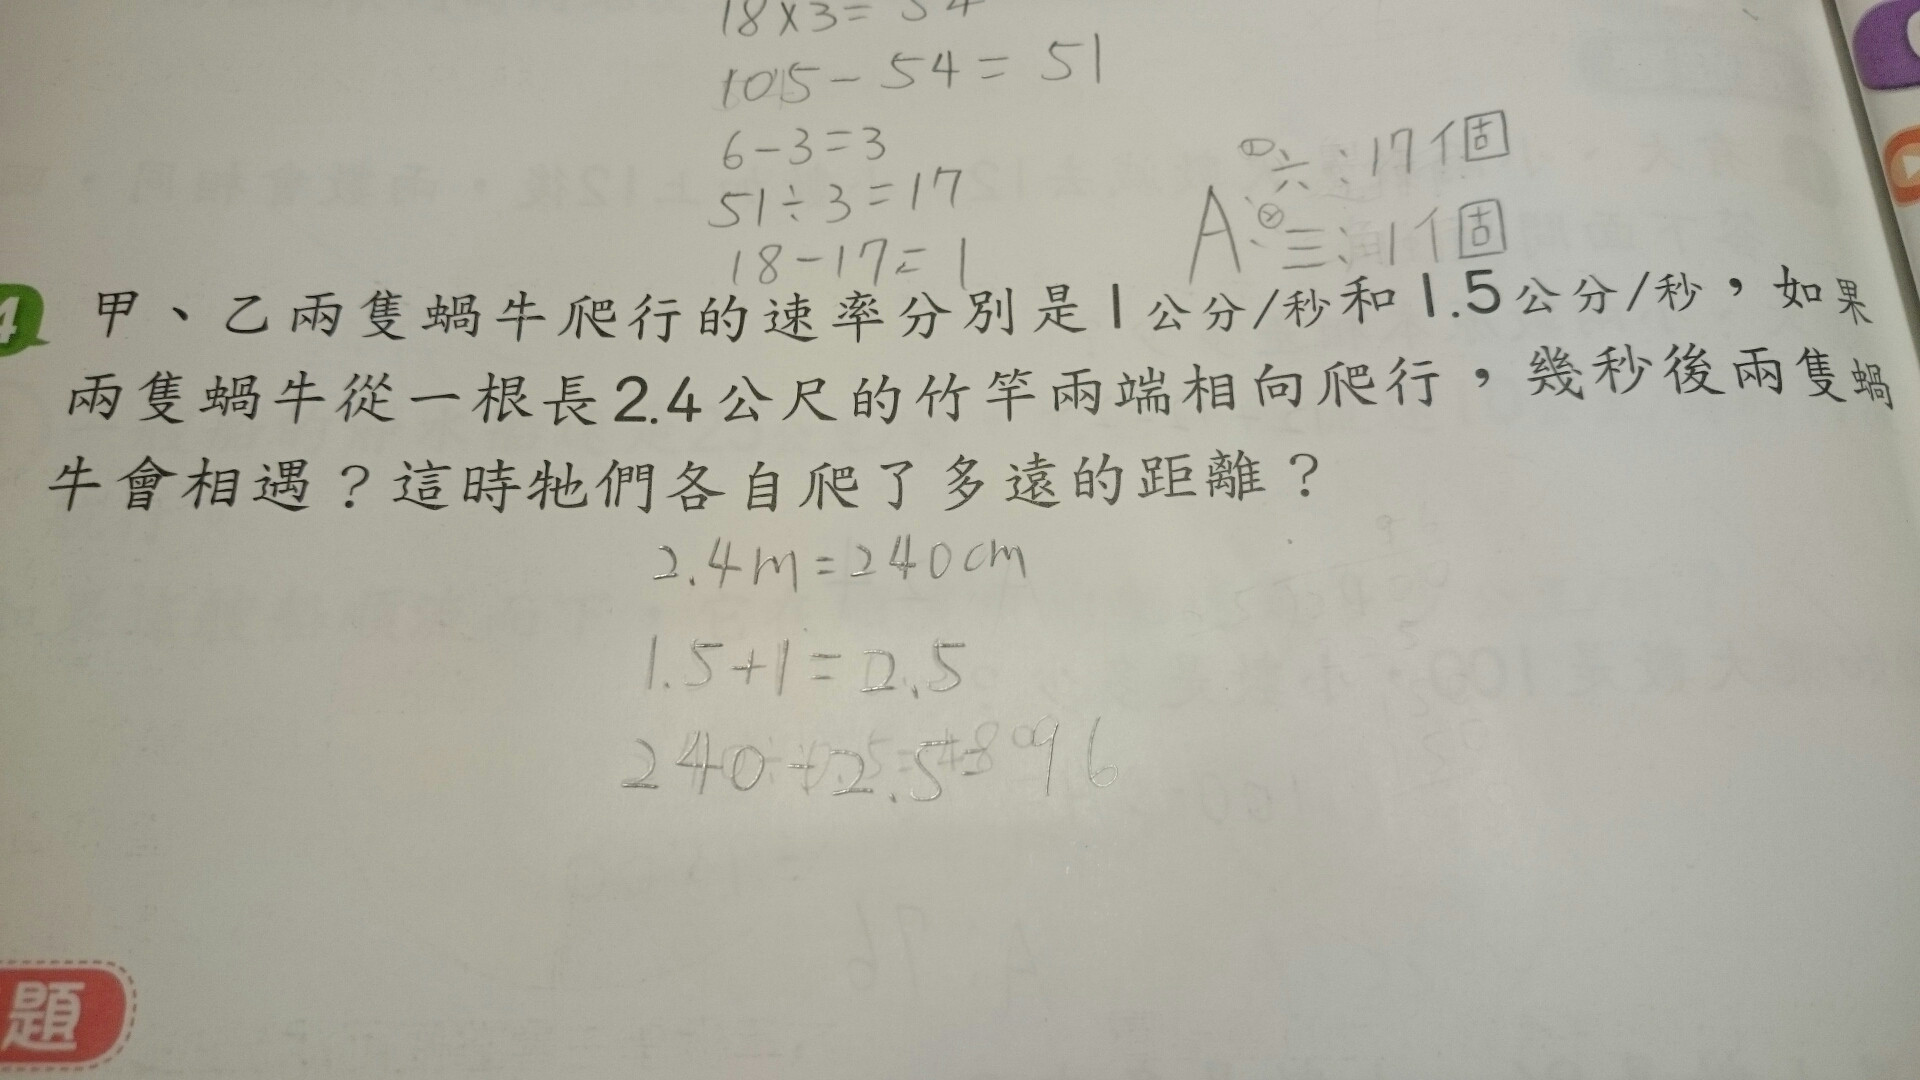 18×3=54
105-54=51
6-3=3
51÷3=17
18-17=1
①六:17個
A:②三:1個
4 甲、乙兩隻蝸牛爬行的速率分別是1公分/秒和1.5公分/秒，如果
兩隻蝸牛從一根長2.4公尺的竹竿兩端相向爬行，幾秒後兩隻蝸
牛會相遇？這時牠們各自爬了多遠的距離？
2.4m=240cm
1.5+1=2.5
240÷2.5=96
題